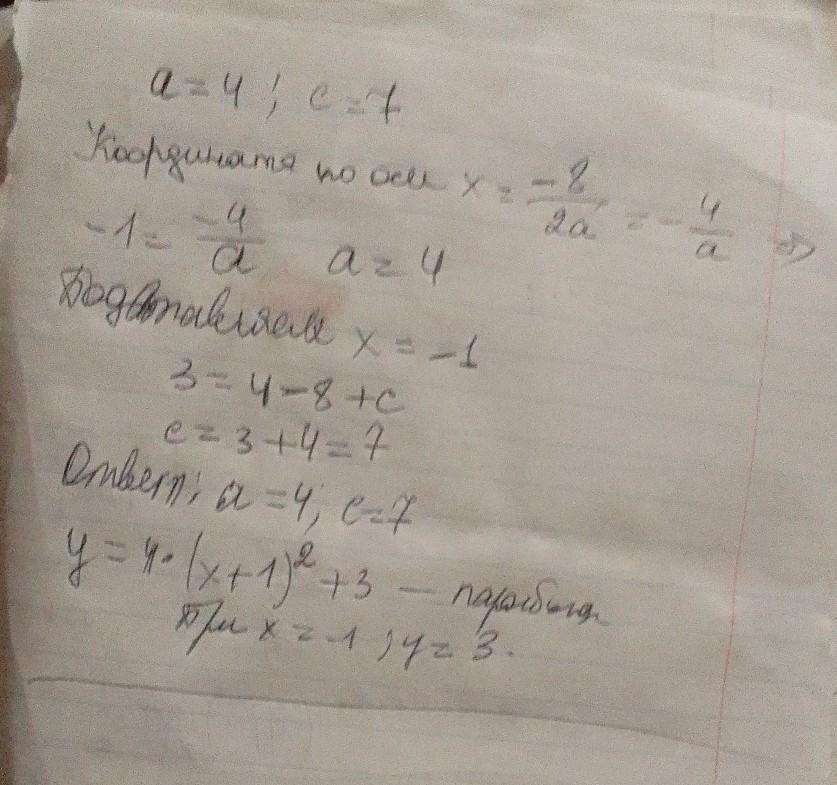 a = 4 ; c = 7
Координата по оси x = -8/2a = -4/a ⇒
-1 = -4/a   a = 4
Подставляем x = -1
3 = 4 - 8 + c
c = 3 + 4 = 7
Ответ: a = 4; c = 7
y = 4·(x+1)² + 3 — парабола
При x = -1 ; y = 3.